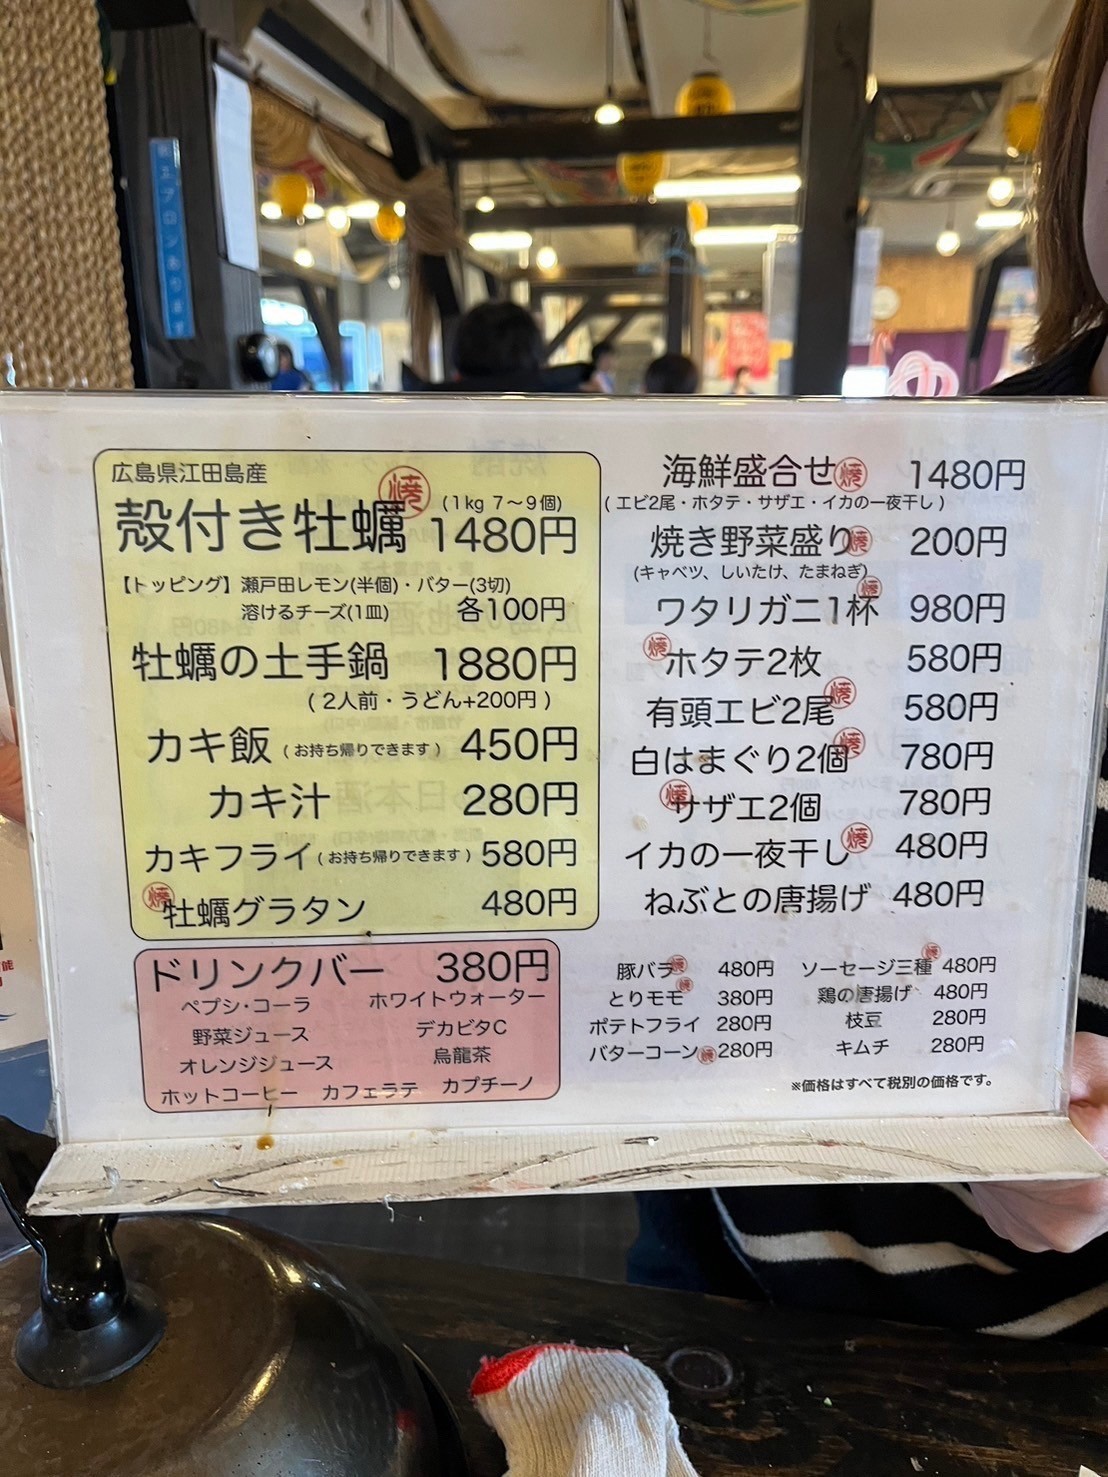 エプロンあります
広島県江田島産
殻付き牡蠣 焼 (1kg 7〜9個) 1480円
【トッピング】瀬戸田レモン(半個)・バター(3切)
溶けるチーズ(1皿) 各100円
牡蠣の土手鍋 1880円
(2人前・うどん+200円)
カキ飯 (お持ち帰りできます) 450円
カキ汁 280円
カキフライ (お持ち帰りできます) 580円
焼 牡蠣グラタン 480円
ドリンクバー 380円
ペプシ・コーラ ホワイトウォーター
野菜ジュース デカビタC
オレンジジュース 烏龍茶
ホットコーヒー カフェラテ カプチーノ
海鮮盛合せ 焼 1480円
(エビ2尾・ホタテ・サザエ・イカの一夜干し)
焼き野菜盛り 焼 200円
(キャベツ、しいたけ、たまねぎ)
ワタリガニ1杯 焼 980円
焼 ホタテ2枚 580円
有頭エビ2尾 焼 580円
白はまぐり2個 焼 780円
焼 サザエ2個 780円
イカの一夜干し 焼 480円
ねぶとの唐揚げ 480円
豚バラ 焼 480円 ソーセージ三種 焼 480円
とりモモ 焼 380円 鶏の唐揚げ 480円
ポテトフライ 280円 枝豆 280円
バターコーン 焼 280円 キムチ 280円
※価格はすべて税別の価格です。